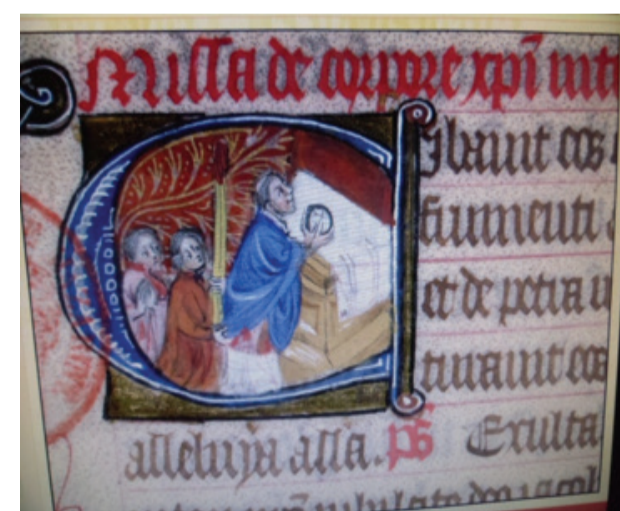 Missa de corpore xpī int
Cibauit eos
frumenti
et de petra
turauit eos
alleluya alla. ps Exulta
iubilate deo iacob